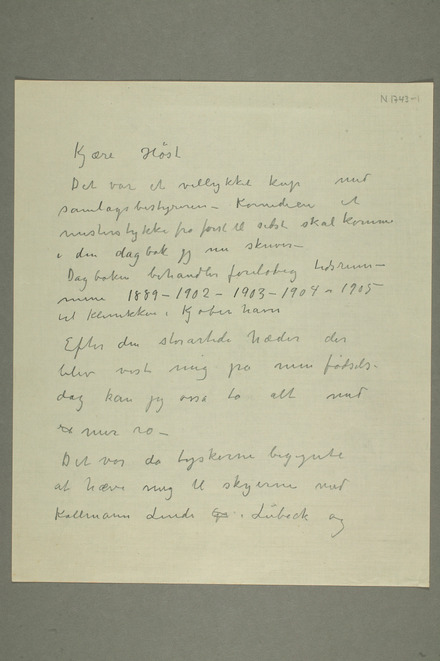 N 1743-1
Kjære Höst
Det var et vellykket kup med
samlagsbestyreren – Komedien et
mesterstykke fra først til sidst skal komme
i den dagbok jeg nu skriver –
Dagboken behandler foreløbig tidsrum-
mene 1889 – 1902 – 1903 – 1904 – 1905
til klinikken i Kjøbenhavn
Efter den storartede hæder der
blev vist mig på min fødsels-
dag kan jeg osså ta alt med
mer ro –
Det var da tyskerne begynte
at hæve mig til skyerne med
Kollmann Linde i Lübeck og